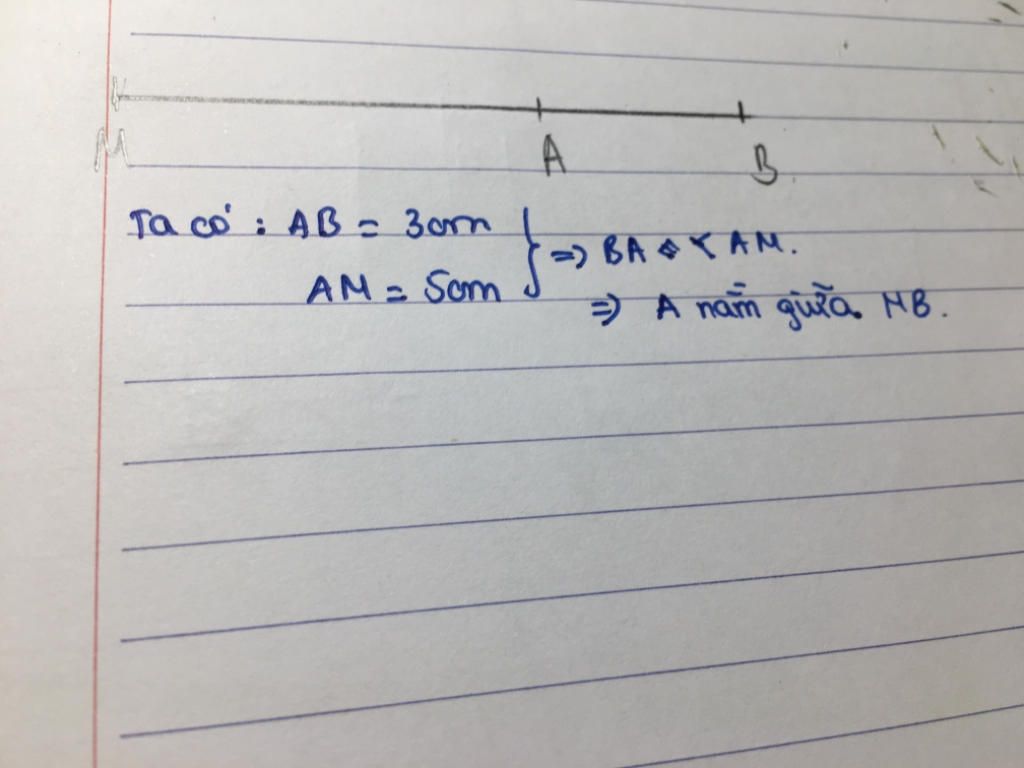 M A B
Ta có : AB = 3cm
AM = 5cm } => BA < AM.
=> A nằm giữa MB.